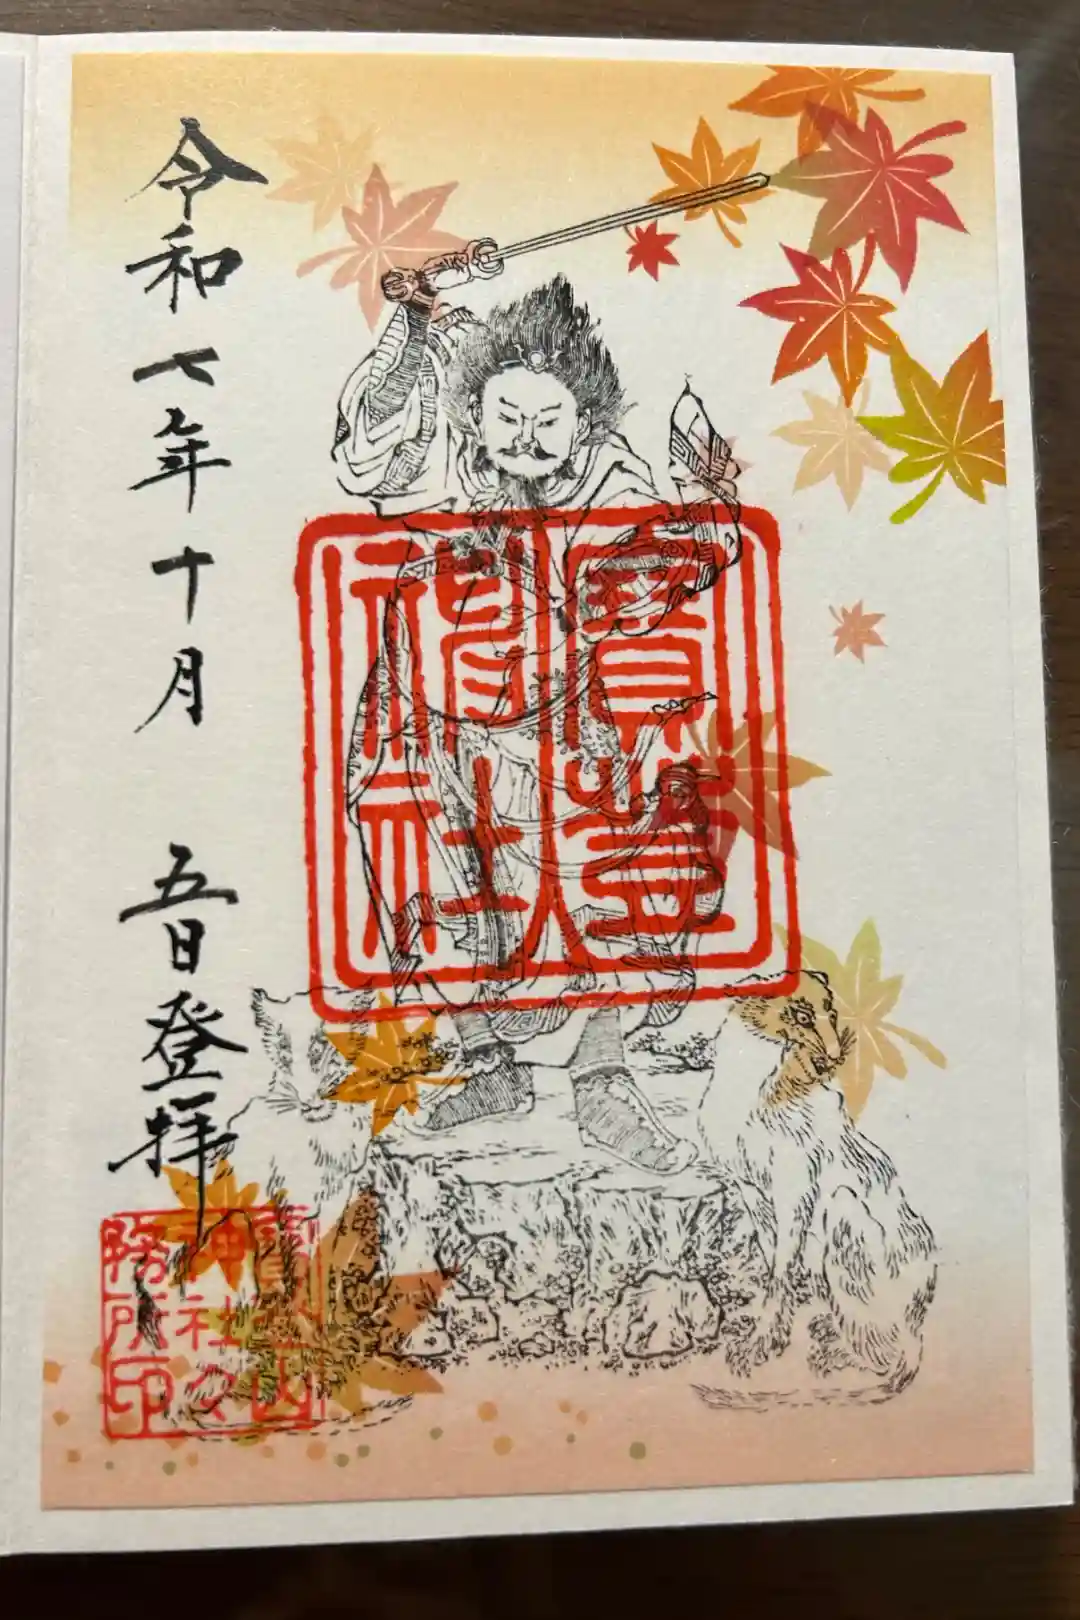 寶登
神社
令和七年十月 五日登拝
寶登山
神社々
務所印